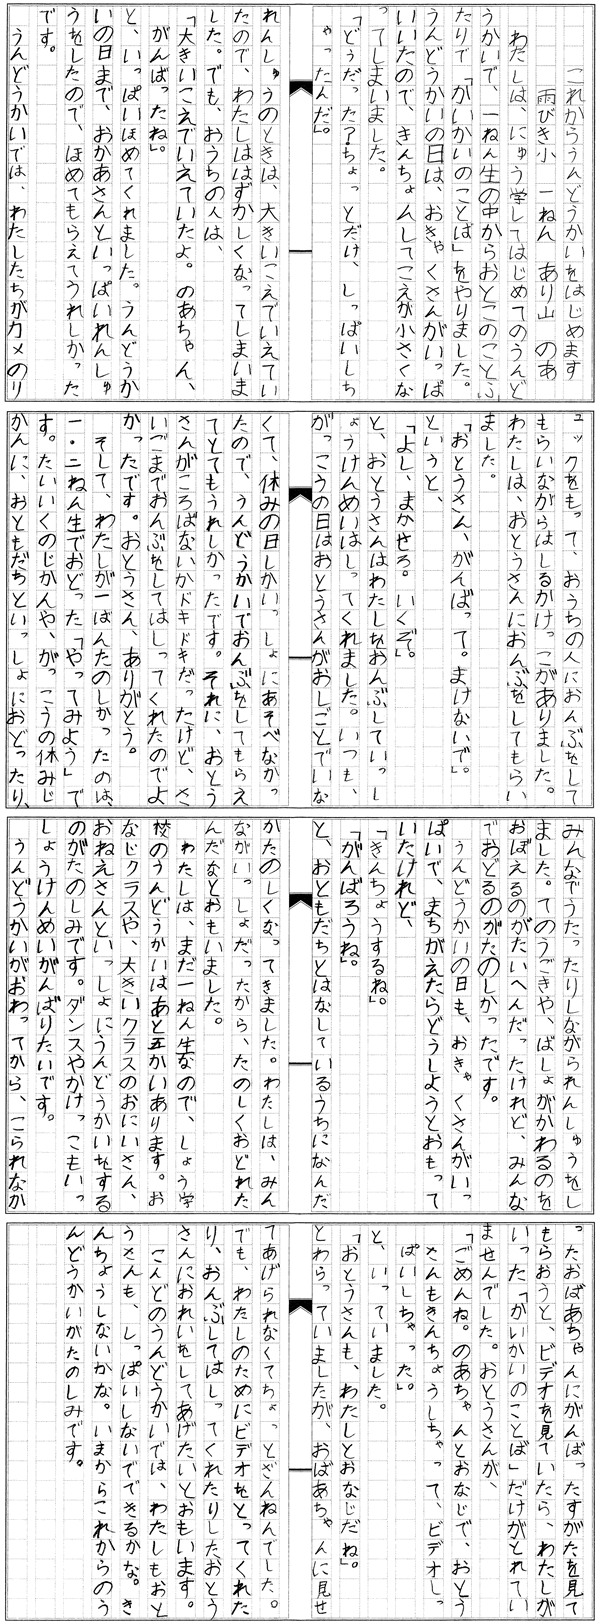 これからうんどうかいをはじめます
雨びき小 一ねん あり山 のあ
わたしは、にゅう学してはじめてのうんど
うかいで、一ねん生の中からおとこのことふ
たりで「かいかいのことば」をやりました。
うんどうかいの日は、おきゃくさんがいっぱ
いいたので、きんちょんしてこえが小さくな
ってしまいました。
「どうだった？ちょっとだけ、しっぱいしち
ゃったんだ。」
れんしゅうのときは、大きいこえでいえてい
たので、わたしははずかしくなってしまいま
した。でも、おうちの人は、
「大きいこえでいえていたよ。のあちゃん、
がんばったね。」
と、いっぱいほめてくれました。うんどうか
いの日まで、おかあさんといっぱいれんしゅ
うをしたので、ほめてもらえてうれしかった
です。
うんどうかいでは、わたしたちがカメのリ
ュックをもって、おうちの人におんぶをして
もらいながらはしるかけっこがありました。
わたしは、おとうさんにおんぶをしてもらい
ました。
「おとうさん、がんばって。まけないで。」
というと、
「よし、まかせろ。いくぞ。」
と、おとうさんはわたしをおんぶしていっし
ょうけんめいはしってくれました。いつも、
がっこうの日はおとうさんがおしごとでいな
くて、休みの日しかいっしょにあそべなかっ
たので、うんどうかいでおんぶをしてもらえ
てとてもうれしかったです。それに、おとう
さんがころばないかドキドキだったけど、さ
いごまでおんぶをしてはしってくれたのでよ
かったです。おとうさん、ありがとう。
そして、わたしが一ばんたのしかったのは、
一・二ねん生でおどった「やってみよう」で
す。たいいくのじかんや、がっこうの休みじ
かんに、おともだちといっしょにおどったり、
みんなでうたったりしながられんしゅうをし
ました。てのうごきや、ばしょがかわるのを
おぼえるのがたいへんだったけれど、みんな
でおどるのがたのしかったです。
うんどうかいの日も、おきゃくさんがいっ
ぱいで、まちがえたらどうしようとおもって
いたけれど、
「きんちょうするね。」
「がんばろうね。」
と、おともだちとはなしているうちになんだ
かたのしくなってきました。わたしは、みん
ながいっしょだったから、たのしくおどれた
んだなとおもいました。
わたしは、まだ一ねん生なので、しょう学
校のうんどうかいはあと五かいあります。お
なじクラスや、大きいクラスのおにいさん、
おねえさんといっしょにうんどうかいをする
のがたのしみです。ダンスやかけっこもいっ
しょうけんめいがんばりたいです。
うんどうかいがおわってから、こられなか
ったおばあちゃんにがんばったすがたを見て
もらおうと、ビデオを見ていたら、わたしが
いった「かいかいのことば」だけがとれてい
ませんでした。おとうさんが、
「ごめんね。のあちゃんとおなじで、おとう
さんもきんちょうしちゃって、ビデオしっ
ぱいしちゃった。」
と、いっていました。
「おとうさんも、わたしとおなじだね。」
とわらっていましたが、おばあちゃんに見せ
てあげられなくてちょっとざんねんでした。
でも、わたしのためにビデオをとってくれた
り、おんぶしてはしってくれたりしたおとう
さんにおれいをしてあげたいとおもいます。
こんどのうんどうかいでは、わたしもおと
うさんも、しっぱいしないでできるかな。き
んちょうしないかな。いまからこれからのう
んどうかいがたのしみです。